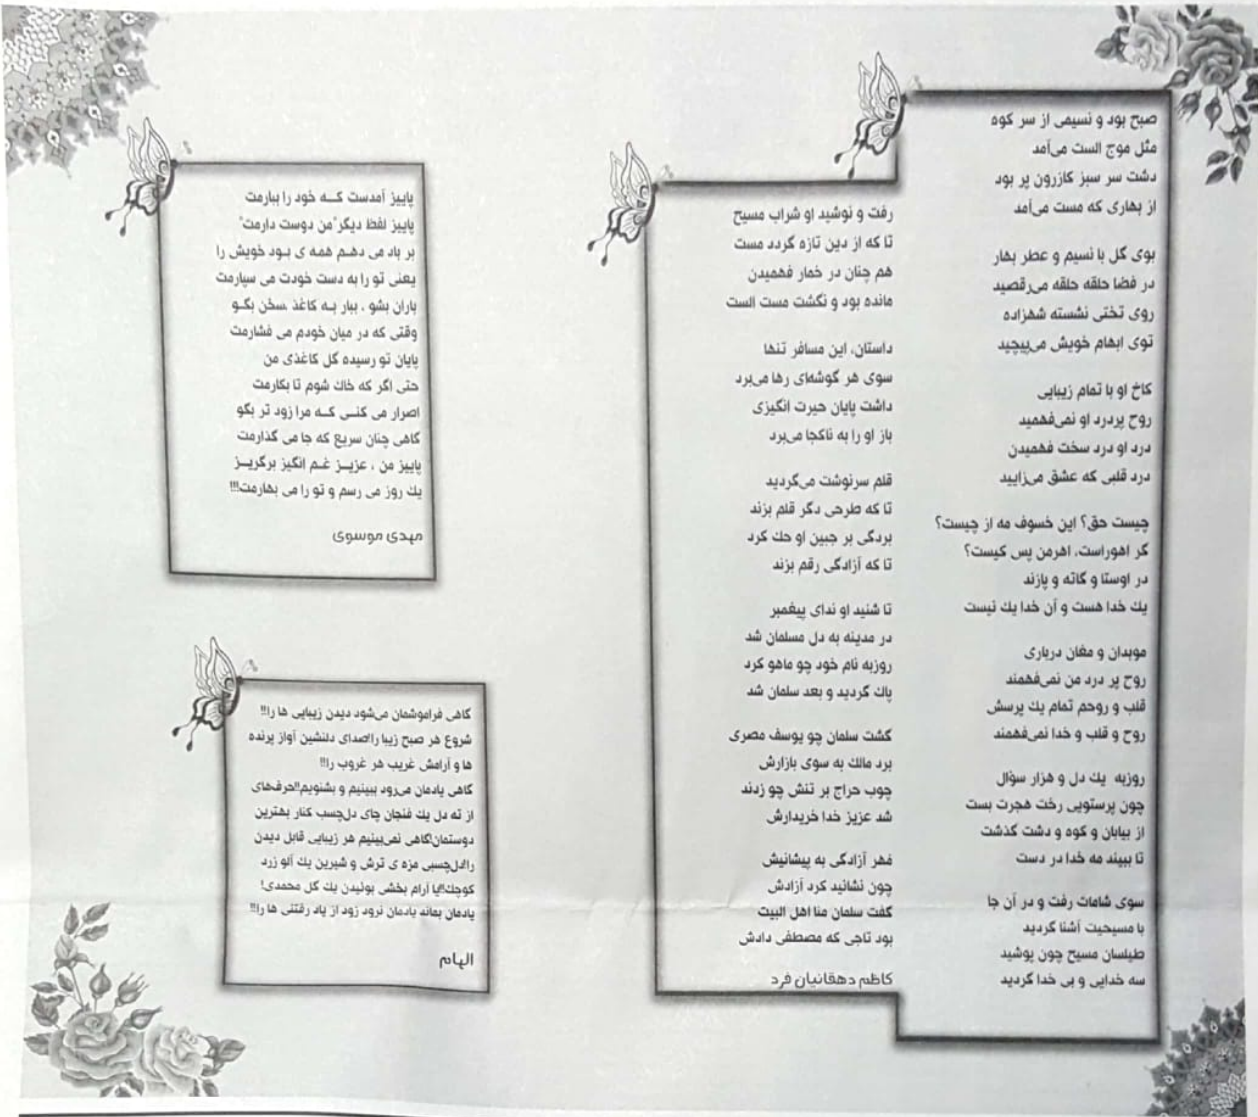 صبح بود و نسیمی از سر کوه
مثل موج الست می‌آمد
دشت سر سبز کازرون پر بود
از بهاری که مست می‌آمد
بوی گل با نسیم و عطر بهار
در فضا حلقه حلقه می‌رقصید
روی تختی نشسته شهزاده
توی ابهام خویش می‌پیچید
کاخ او با تمام زیبایی
روح پردرد او نمی‌فهمید
درد او درد سخت فهمیدن
درد قلبی که عشق می‌زایید
چیست حق؟ این خسوف مه از چیست؟
گر اهوراست، اهرمن پس کیست؟
در اوستا و گاته و پازند
یك خدا هست و آن خدا یك نیست
موبدان و مغان درباری
روح پر درد من نمی‌فهمند
قلب و روحم تمام یك پرسش
روح و قلب و خدا نمی‌فهمند
روزبه یك دل و هزار سؤال
چون پرستویی رخت هجرت بست
از بیابان و کوه و دشت گذشت
تا ببیند مه خدا در دست
سوی شامات رفت و در آن جا
با مسیحیت آشنا گردید
طیلسان مسیح چون پوشید
سه خدایی و بی خدا گردید
رفت و نوشید او شراب مسیح
تا که از دین تازه گردد مست
هم چنان در خمار فهمیدن
مانده بود و نگشت مست الست
داستان، این مسافر تنها
سوی هر گوشه‌ای رها می‌برد
داشت پایان حیرت انگیزی
باز او را به ناکجا می‌برد
قلم سرنوشت می‌گردید
تا که طرحی دگر قلم بزند
بردگی بر جبین او حك کرد
تا که آزادگی رقم بزند
تا شنید او ندای پیغمبر
در مدینه به دل مسلمان شد
روزبه نام خود چو ماهو کرد
پاك گردید و بعد سلمان شد
گشت سلمان چو یوسف مصری
برد مالك به سوی بازارش
چوب حراج بر تنش چو زدند
شد عزیز خدا خریدارش
مُهر آزادگی به پیشانیش
چون نشانید کرد آزادش
گفت سلمان منا اهل البیت
بود تاجی که مصطفی دادش
کاظم دهقانیان فرد
پاییز آمدست کـه خود را ببارمت
پاییز لفظ دیگر"من دوست دارمت"
بر باد می دهـم همه ی بـود خویش را
یعنی تو را به دست خودت می سپارمت
باران بشو ، ببار بـه کاغذ ،سخن بگـو
وقتی که در میان خودم می فشارمت
پایان تو رسیده گل کاغذی من
حتی اگر که خاك شوم تا بکارمت
اصرار می کنـی کـه مرا زود تر بگو
گاهی چنان سریع که جا می گذارمت
پاییز من ، عزیـز غـم انگیز برگریـز
یك روز می رسم و تو را می بهارمت!!!
مهدی موسوی
گاهی فراموشمان می‌شود دیدن زیبایی ها را!!
شروع هر صبح زیبا را!صدای دلنشین آواز پرنده
ها و آرامش غریب هر غروب را!!
گاهی یادمان می‌رود ببینیم و بشنویم!!حرف‌های
از ته دل یك فنجان چای دل‌چسب کنار بهترین
دوستمان!گاهی نمی‌بینیم هر زیبایی قابل دیدن
را!دل‌چسبی مزه ی ترش و شیرین یك آلو زرد
کوچك!!یا آرام بخشی بوئیدن یك گل محمدی!
یادمان بماند یادمان نرود زود از یاد رفتنی ها را!!
الهام